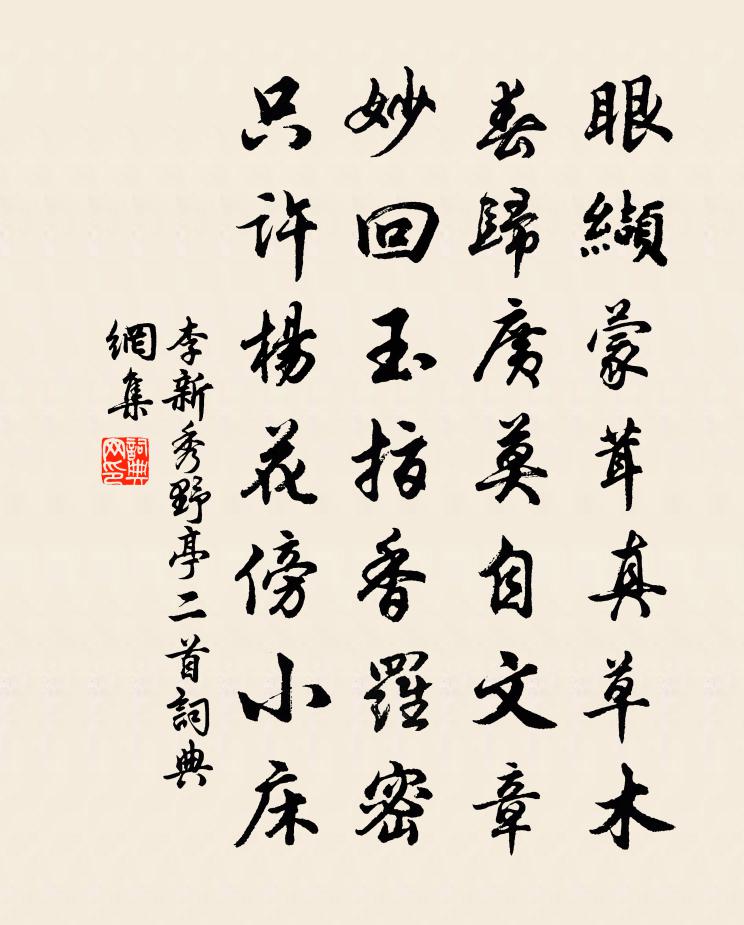 眼纈蒙茸真草木
春歸廣莫自文章
妙回玉指香羅密
只許楊花傍小床
李新秀野亭二首詞典
網集
詞典
网印